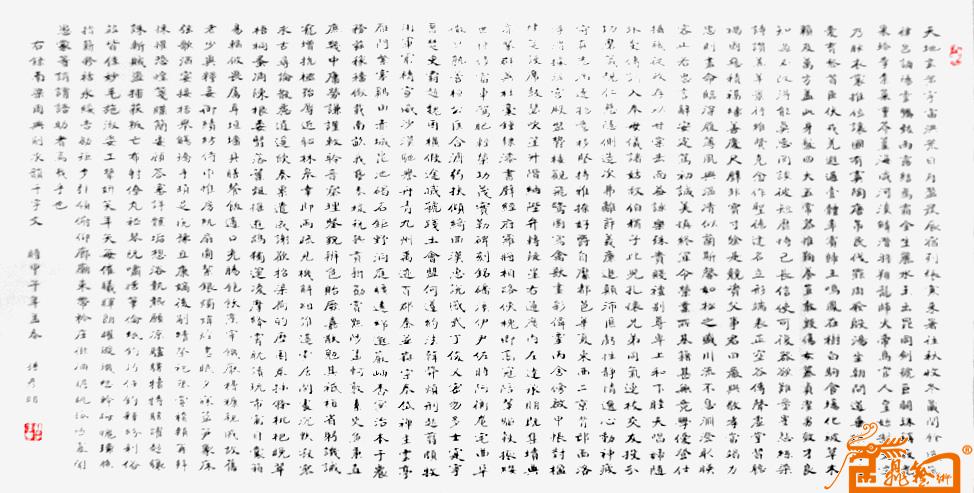 天地玄黃宇宙洪荒日月盈昃辰宿列張寒來暑往秋收冬藏閏餘
律呂調陽雲騰致雨露結為霜金生麗水玉出崑岡劍號巨闕珠稱夜光
果珍李柰菜重芥薑海鹹河淡鱗潛羽翔龍師火帝鳥官人皇始制文字
乃服衣裳推位讓國有虞陶唐弔民伐罪周發殷湯坐朝問道垂拱平章
愛育黎首臣伏戎羌遐邇壹體率賓歸王鳴鳳在樹白駒食場化被草木
賴及萬方蓋此身髮四大五常恭惟鞠養豈敢毀傷女慕貞潔男效才良
知過必改得能莫忘罔談彼短靡恃己長信使可覆器欲難量墨悲絲染
詩讚羔羊景行維賢克念作聖德建名立形端表正空谷傳聲虛堂習聽
禍因惡積福緣善慶尺璧非寶寸陰是競資父事君曰嚴與敬孝當竭力
忠則盡命臨深履薄夙興溫凊似蘭斯馨如松之盛川流不息淵澄取映
容止若思言辭安定篤初誠美慎終宜令榮業所基籍甚無竟學優登仕
攝職從政存以甘棠去而益詠樂殊貴賤禮別尊卑上和下睦夫唱婦隨
外受傅訓入奉母儀諸姑伯叔猶子比兒孔懷兄弟同氣連枝交友投分
切磨箴規仁慈隱惻造次弗離節義廉退顛沛匪虧性靜情逸心動神疲
守真志滿逐物意移堅持雅操好爵自縻都邑華夏東西二京背邙面洛
浮渭據涇宮殿盤鬱樓觀飛驚圖寫禽獸畫彩仙靈丙舍傍啟甲帳對楹
肆筵設席鼓瑟吹笙升階納陛弁轉疑星右通廣內左達承明既集墳典
亦聚群英杜稿鍾隸漆書壁經府羅將相路俠槐卿高冠陪輦驅轂振纓
世祿侈富車駕肥輕策功茂實勒碑刻銘磻溪伊尹佐時阿衡奄宅曲阜
微旦孰營桓公匡合濟弱扶傾綺迴漢惠說感武丁俊乂密勿多士寔寧
晉楚更霸趙魏困橫假途滅虢踐土會盟何遵約法韓弊煩刑起翦頗牧
用軍最精宣威沙漠馳譽丹青九州禹跡百郡秦并嶽宗泰岱禪主云亭
雁門紫塞雞田赤城昆池碣石鉅野洞庭曠遠綿邈巖岫杳冥治本於農
務茲稼穡俶載南畝我藝黍稷稅熟貢新勸賞黜陟孟軻敦素史魚秉直
庶幾中庸勞謙謹敕聆音察理鑒貌辨色貽厥嘉猷勉其祗植省躬譏誡
寵增抗極殆辱近恥林皋幸即兩疏見機解組誰逼索居閒處沉默寂寥
求古尋論散慮逍遙欣奏累遣慼謝歡招渠荷的歷園莽抽條枇杷晚翠
梧桐蚤凋陳根委翳落葉飄颻遊鵾獨運凌摩絳霄耽讀翫市寓目囊箱
易輶攸畏屬耳垣牆具膳餐飯適口充腸飽飫烹宰飢厭糟糠親戚故舊
老少異糧妾御績紡侍巾帷房紈扇圓潔銀燭煒煌晝眠夕寐藍筍象床
弦歌酒宴接杯舉觴矯手頓足悅豫且康嫡後嗣續祭祀烝嘗稽顙再拜
悚懼恐惶牋牒簡要顧答審詳骸垢想浴執熱願涼驢騾犢特駭躍超驤
誅斬賊盜捕獲叛亡布射僚丸嵇琴阮嘯恬筆倫紙鈞巧任釣釋紛利俗
並皆佳妙毛施淑姿工顰妍笑年矢每催曦暉朗曜璇璣懸斡晦魄環照
指薪修祜永綏吉劭矩步引領俯仰廊廟束帶矜莊徘徊瞻眺孤陋寡聞
愚蒙等誚謂語助者焉哉乎也
右錄南梁周興嗣次韻千字文 時甲子年孟春